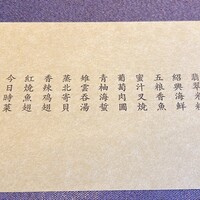 翡翠
紹興海鮮
五粮香魚
蜜汁叉燒
葡萄肉圓
青柚海蜇
雲吞湯
蒸北寄貝
香辣鸡翅
紅燒魚翅
今日時菜